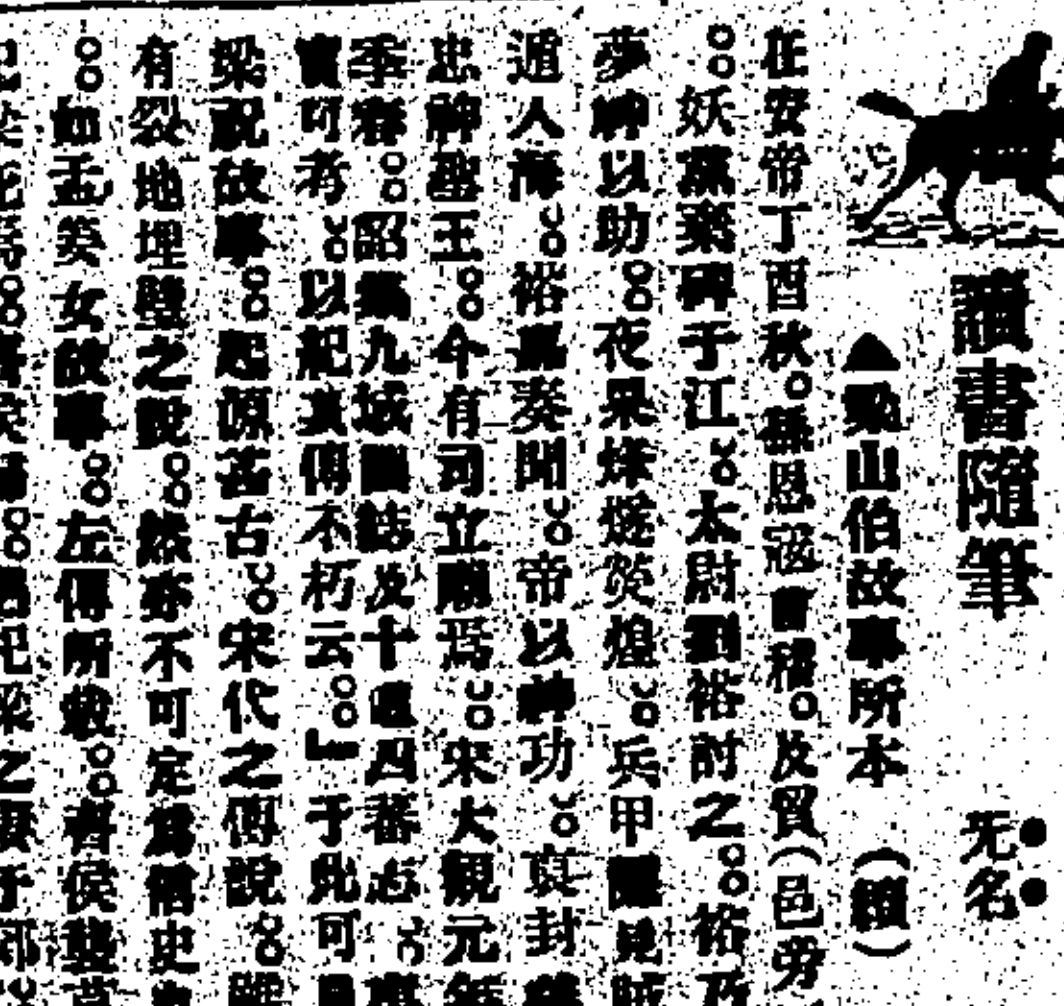 讀書隨筆
无名
▲梁山伯故事所本（續）
任安帝丁酉秋。孫恩寇會稽。及貿（邑旁
妖黨棄碑于江。太尉劉裕討之。裕乃
夢神以助。夜果烽燧熒煌。兵甲隱見賊
遁入海。裕嘉奏聞。帝以神功。襃封義
忠神聖王。今有司立廟焉。宋大觀元年
季春。詔集九域圖誌及十道四蕃志。事
實可考。以紀其傳不朽云。』于此可見
梁祝故事。起源甚古。宋代之傳說。雖
有裂地埋璧之說。然亦不可定爲信史
。如孟姜女故事。左傳所載。齊侯襲莒